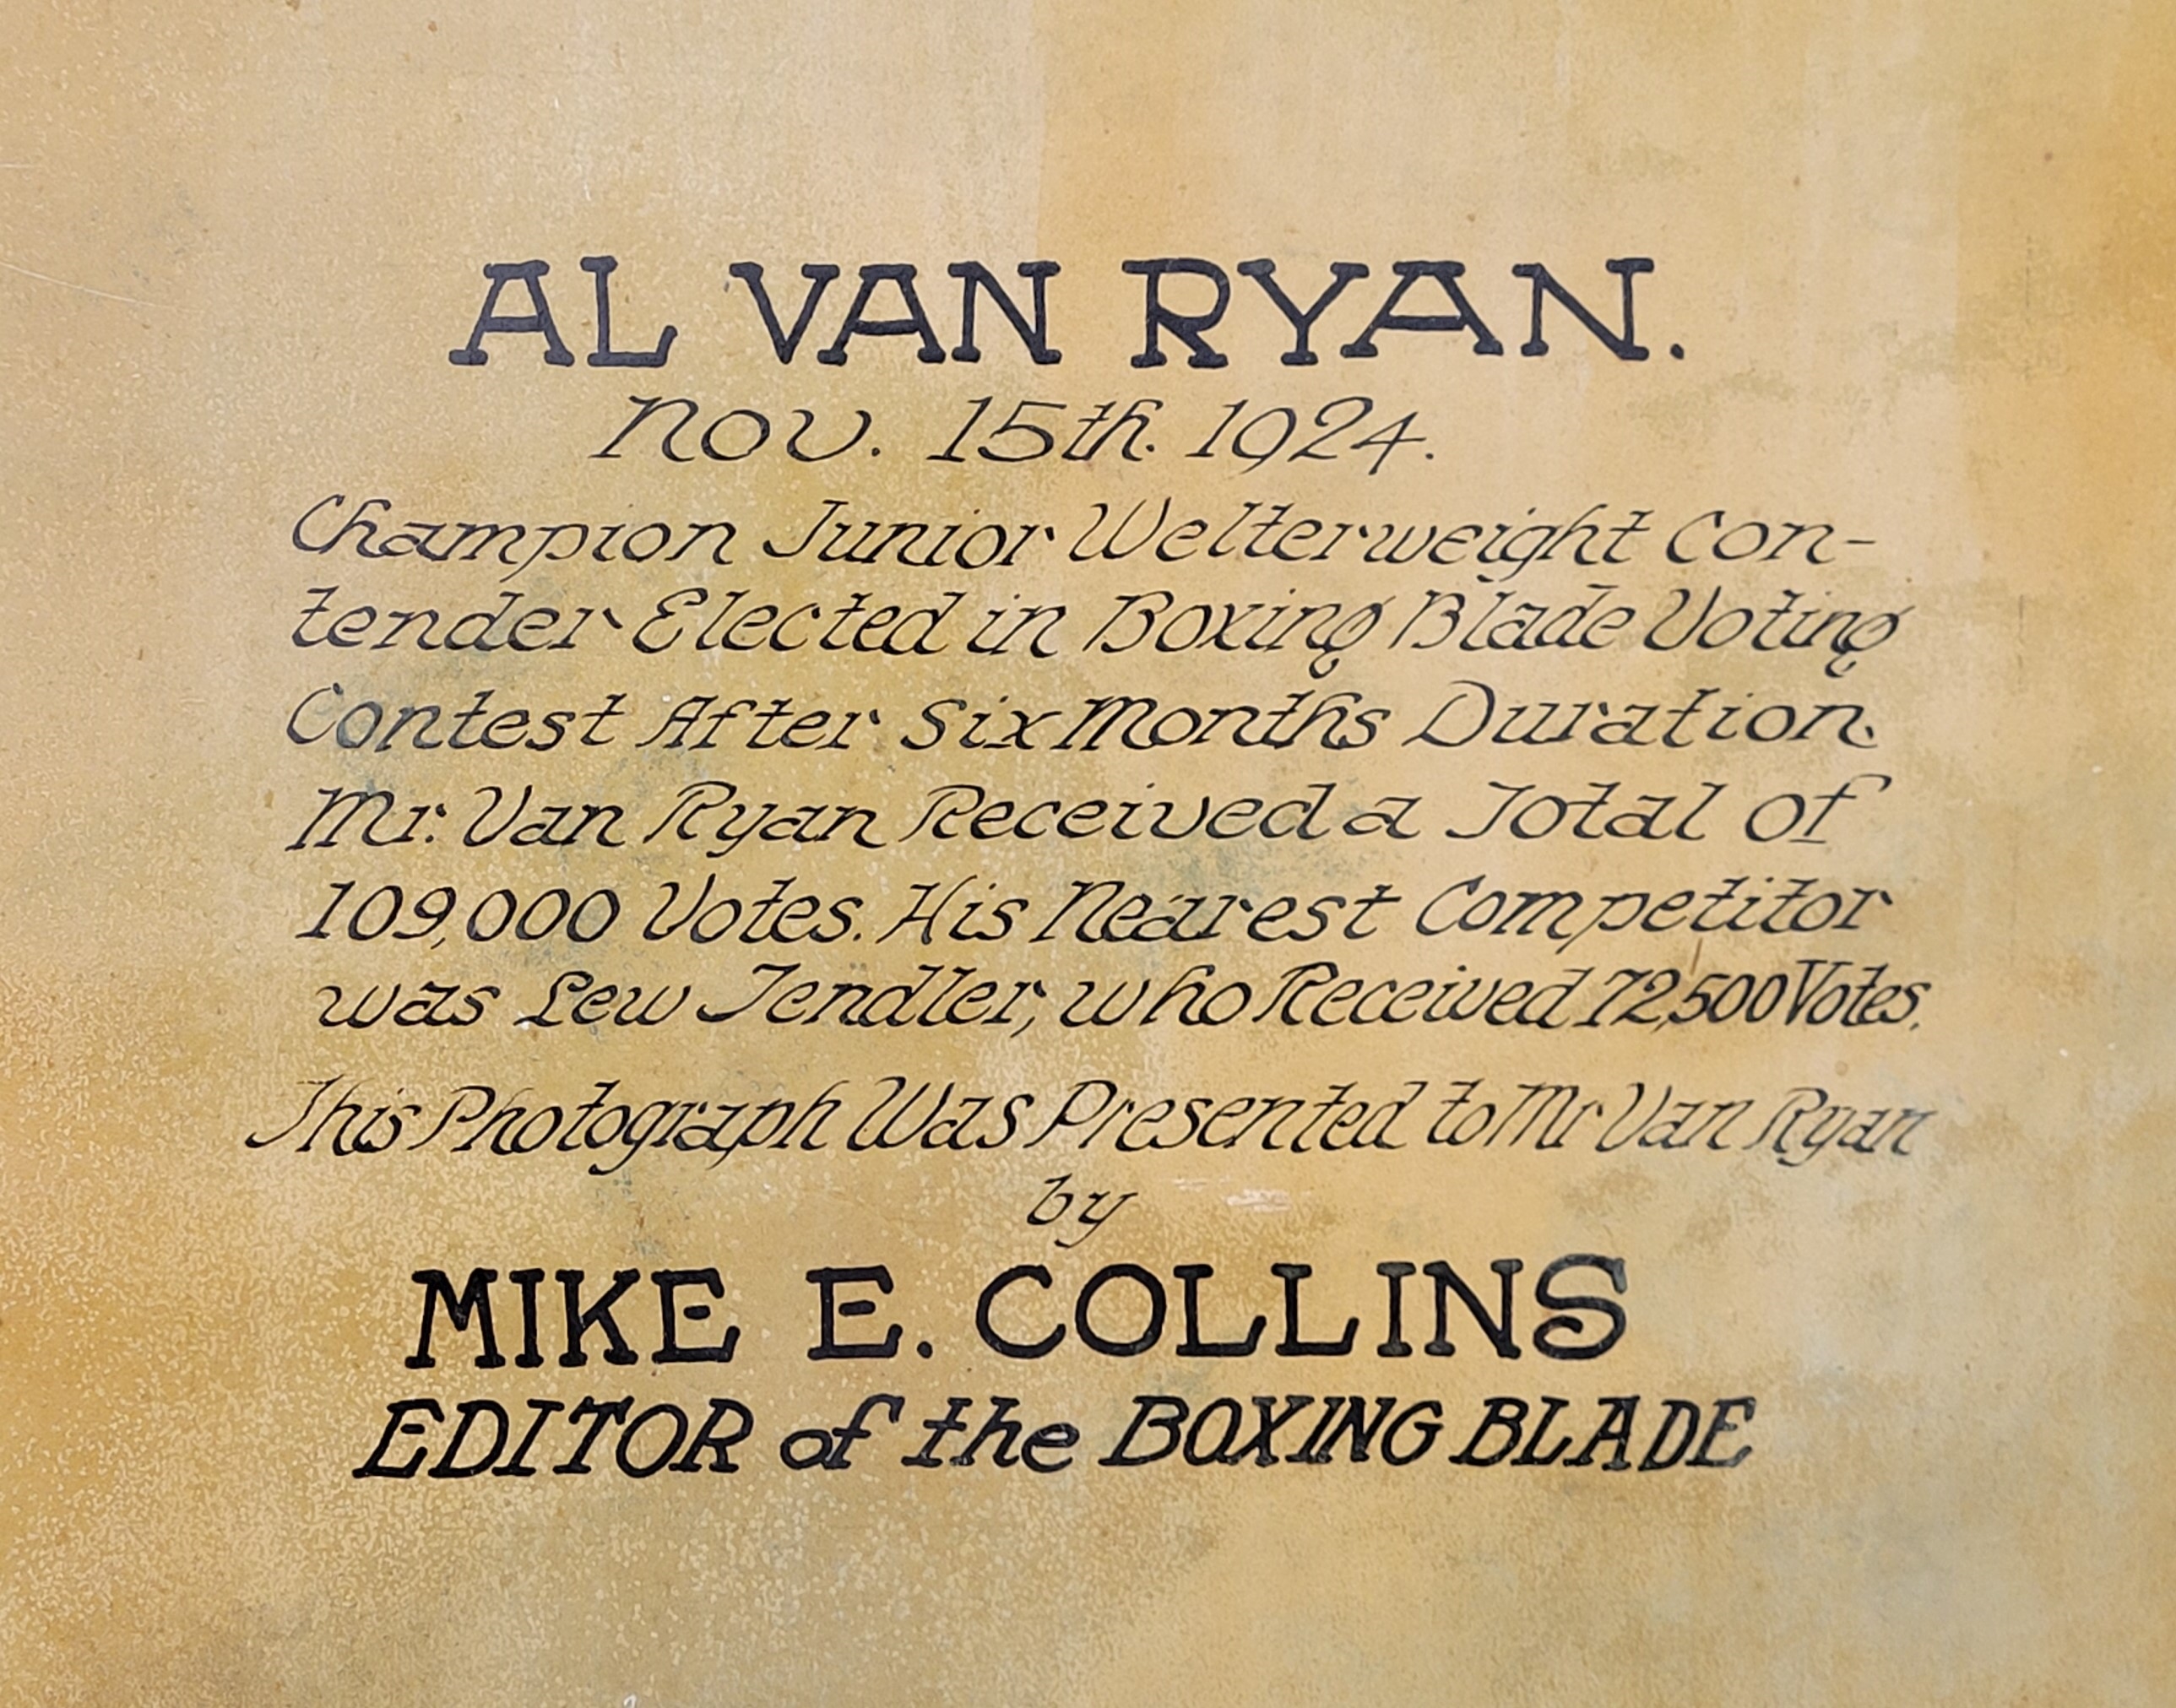 AL VAN RYAN.
Nov. 15th. 1924.
Champion Junior Welterweight Con-
tender Elected in Boxing Blade Voting
Contest After Six Months Duration.
Mr. Van Ryan Received a Total of
109,000 Votes. His Nearest Competitor
was Lew Tendler, who Received 72,500 Votes.
This Photograph Was Presented to Mr Van Ryan
by
MIKE E. COLLINS
EDITOR of the BOXING BLADE